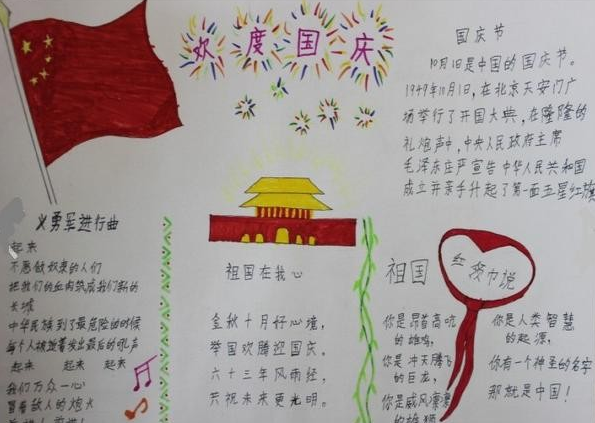 欢度国庆
国庆节
10月1日是中国的国庆节。
1949年10月1日,在北京天安门广
场举行了开国大典,在隆隆的
礼炮声中,中央人民政府主席
毛泽东庄严宣告中华人民共和国
成立并亲手升起了第一面五星红旗
义勇军进行曲
起来
不愿做奴隶的人们
把我们的血肉筑成我们新的
长城
中华民族到了最危险的时候
每个人被迫着发出最后的吼声
起来 起来 起来
我们万众一心
冒着敌人的炮火
祖国在我心
金秋十月好心境,
举国欢腾迎国庆。
六十三年风雨经,
共祝未来更光明。
祖国
红领巾说
你是昂首高吭
的雄鸡,
你是冲天腾飞
的巨龙,
你是威风凛凛
的雄狮
你是人类智慧
的起源,
你有一个神圣的名字
那就是中国!